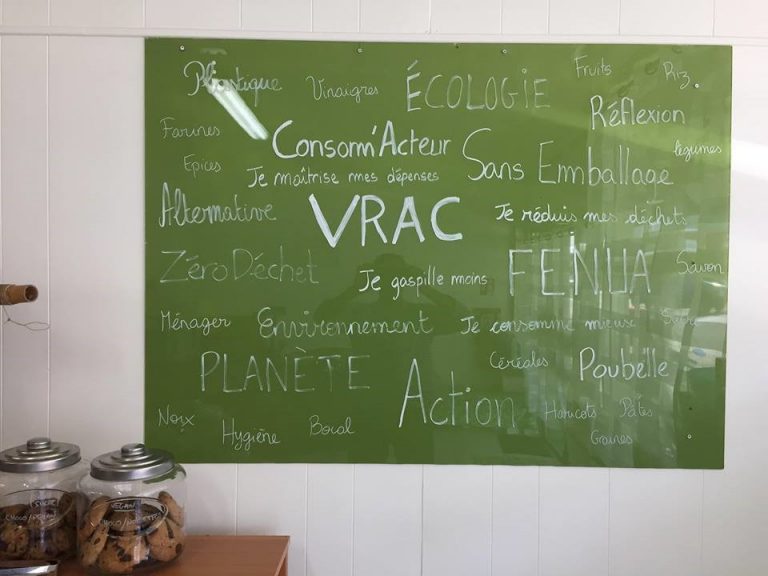 Plastique
Vinaigres
ÉCOLOGIE
Fruits
Riz
Réflexion
Farines
Consomm'Acteur
Sans Emballage
légumes
Epices
Je maîtrise mes dépenses
Alternative
VRAC
Je réduis mes déchets
Zéro Déchet
Je gaspille moins
FENUA
Savon
Ménager
Environnement
Je consomme mieux
Sucre
PLANÈTE
Céréales
Poubelle
Action
Noix
Hygiène
Bocal
Haricots
Pâtes
Graines
VEGAN